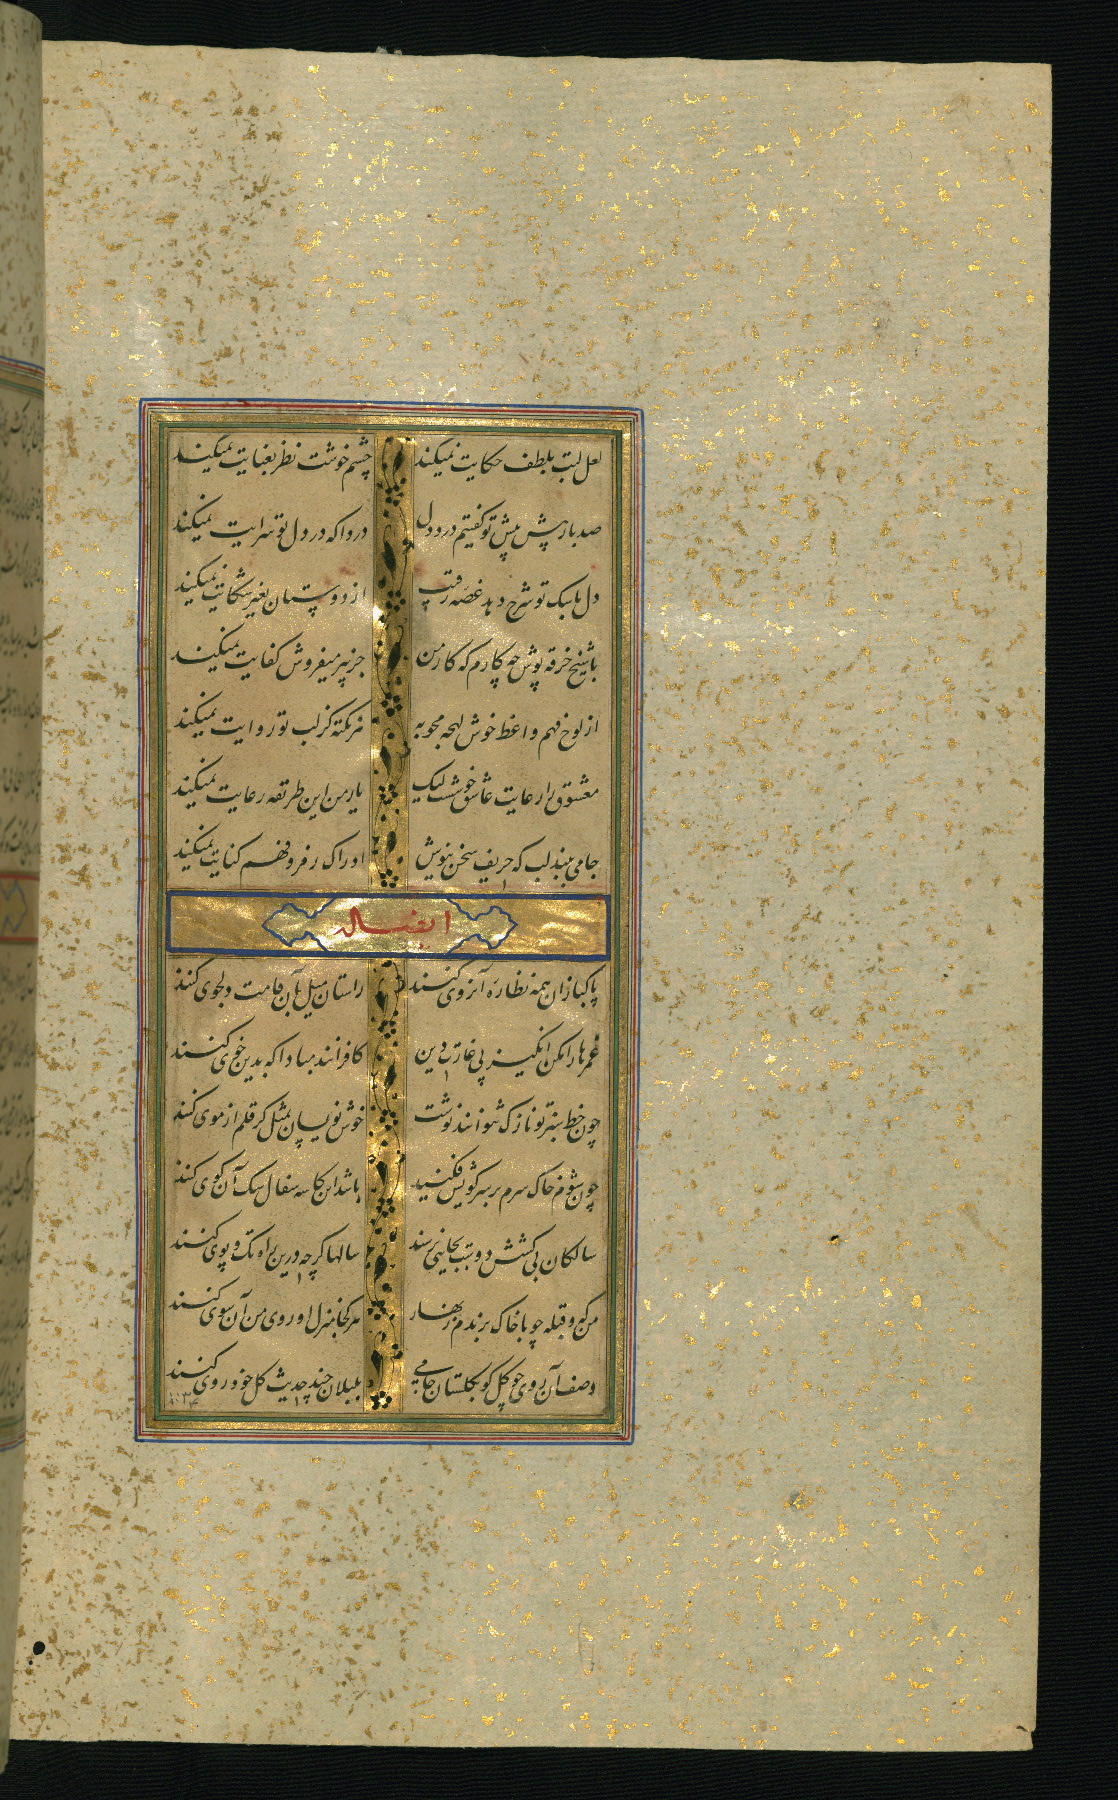 لعل لبت بلطف حکایت نمیکند چشم خوشت نظر بعنایت نمیکند
صد بار پیش پیش تو گفتیم درد دل دردا که در دل تو سرایت نمیکند
دل با سک تو شرح دهد غصه رقیب از دوستان بغیر شکایت نمیکند
با شیخ خرقه پوش چه کارم که کار من جز پیر میفروش کفایت نمیکند
از لوح فهم واعظ خوش لهجه محو به هر نکته کز لب تو روایت نمیکند
معشوق را رعایت عاشق خوشست لیک یار من این طریقه رعایت نمیکند
جامی ببند لب که حریف سخن نیوش ادراک رمز و فهم کنایت نمیکند
ایضا له
پاکبازان همه نظاره آن روی کنند راستان میل بآن قامت دلجوی کنند
غمزها را مکن انکیز پی غارت دین کافرانند مبادا که بدین خوی کنند
چون خط سبز تو نازک نتوانند نوشت خوش نویسان بمثل کر قلم از موی کنند
چون شوم خاک سرم بر سر کویش فکنید باشد این کاسه سفال سک آن کوی کنند
سالکان بی کشش دوست بجایی نرسند سالها کرچه درین راه تک و پوی کنند
من کیم قبله چو با خاک برندم زنهار هر کجا منزل او روی من آن سوی کنند
وصف آن روی چو کل کو بکلستان جامی بلبلان چند حدیث کل خودروی کنند